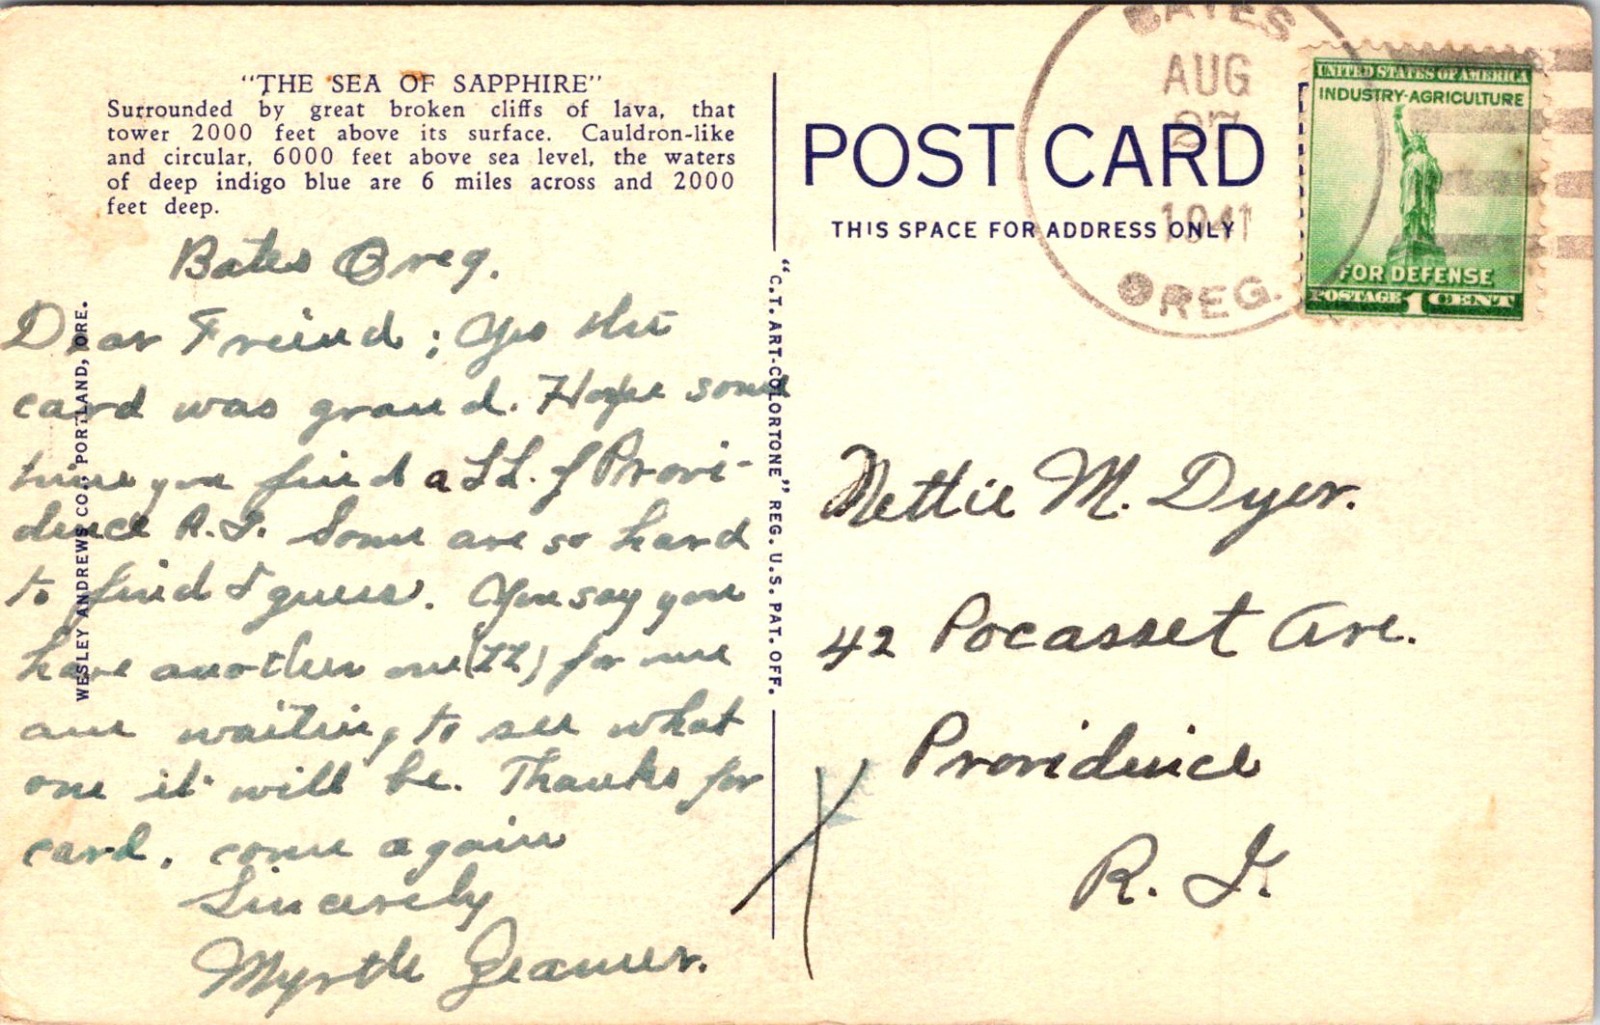 "THE SEA OF SAPPHIRE"
Surrounded by great broken cliffs of lava, that
tower 2000 feet above its surface. Cauldron-like
and circular, 6000 feet above sea level, the waters
of deep indigo blue are 6 miles across and 2000
feet deep.
Bates Oreg.
Dear Freind; Yes the
card was grand. Hope some
time you find a LL. of Provi-
dence R.I. Some are so hard
to find I guess. You say you
have another one (LL) for me
am waiting to see what
one it will be. Thanks for
card, come again
Sincerely
Myrtle
WESLEY ANDREWS CO., PORTLAND, ORE.
"C.T. ART-COLORTONE" REG. U.S. PAT. OFF.
POST CARD
THIS SPACE FOR ADDRESS ONLY
BATES
AUG
27
1941
OREG.
UNITED STATES OF AMERICA
INDUSTRY-AGRICULTURE
FOR DEFENSE
POSTAGE 1 CENT
Nettie M. Dyer.
42 Pocasset Ave.
Providence
R. I.